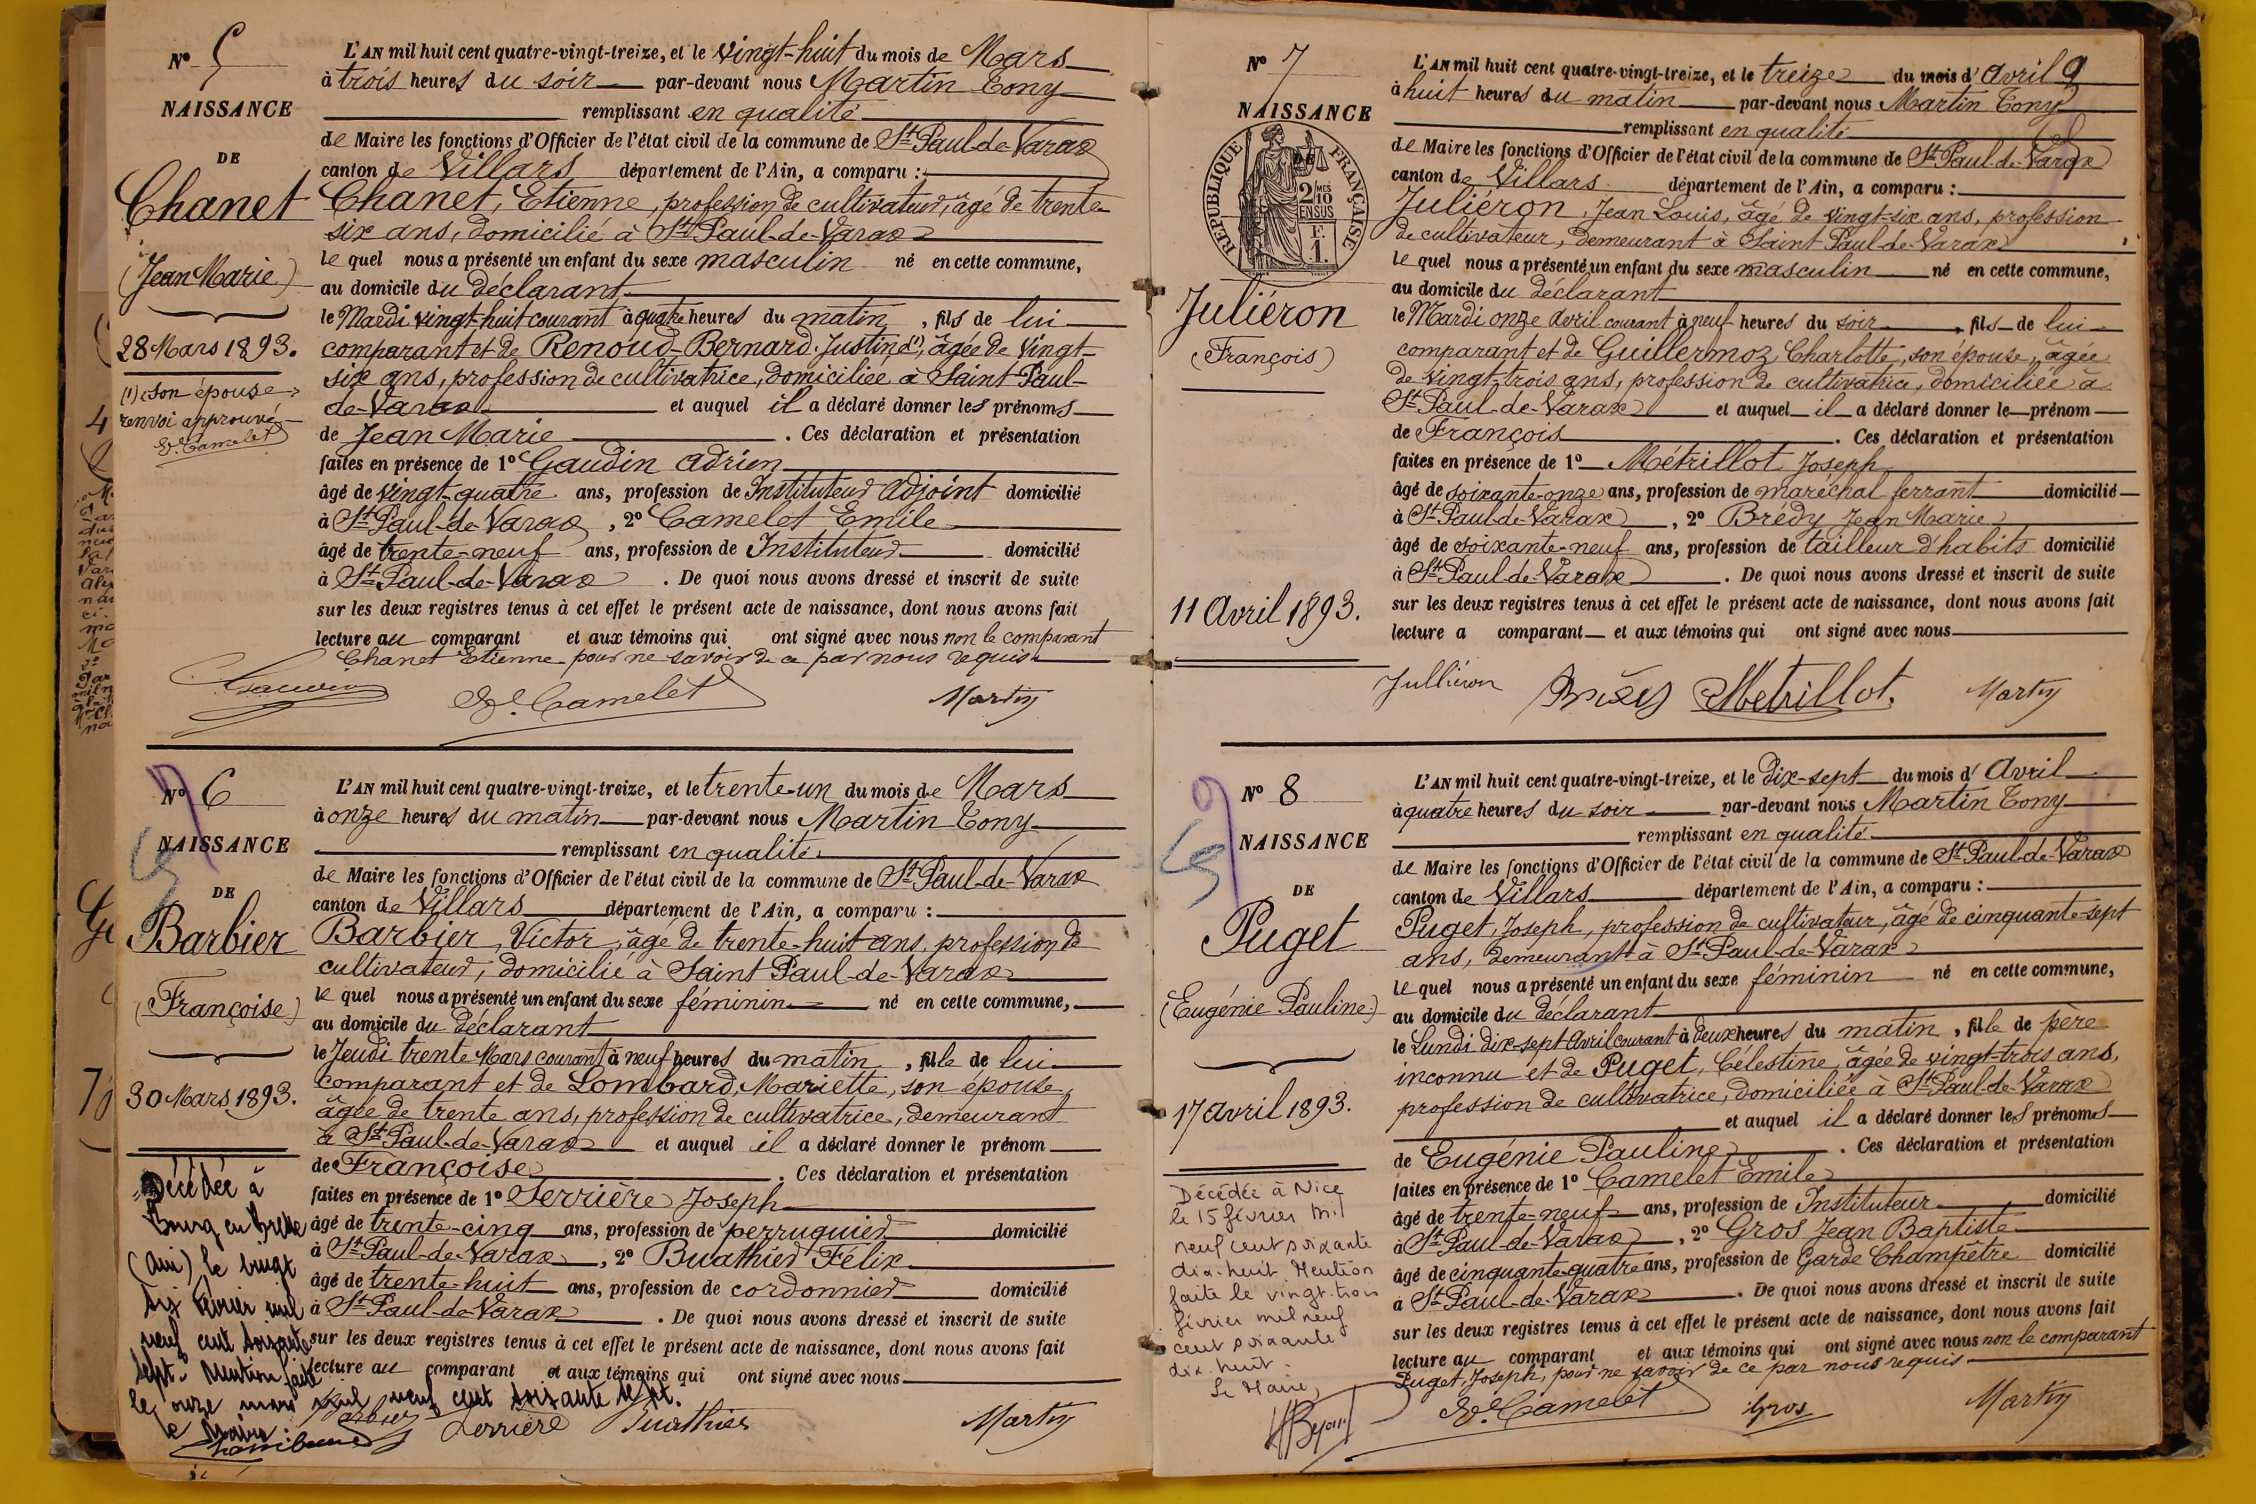 N° 5
NAISSANCE
DE
Chanet
(Jean Marie)
28 Mars 1893.
(1) Son épouse
renvoi approuvé
E. Camelet
L'AN mil huit cent quatre-vingt-treize, et le vingt-huit du mois de Mars
à trois heures du soir par-devant nous Martin Tony
remplissant en qualité
de Maire les fonctions d'Officier de l'état civil de la commune de St Paul-de-Varax
canton de Villars département de l'Ain, a comparu :
Chanet, Etienne, profession de cultivateur, âgé de trente-
six ans, domicilié à St Paul-de-Varax
le quel nous a présenté un enfant du sexe masculin né en cette commune,
au domicile du déclarant
le Mardi vingt-huit courant à quatre heures du matin, fils de lui
comparant et de Renoud-Bernard Justine (1), âgée de vingt-
six ans, profession de cultivatrice, domiciliée à Saint Paul-
de-Varax et auquel il a déclaré donner les prénoms
de Jean Marie. Ces déclaration et présentation
faites en présence de 1° Gaudin Adrien
âgé de vingt-quatre ans, profession de Instituteur adjoint domicilié
à St Paul-de-Varax, 2° Camelet Emile
âgé de trente-neuf ans, profession de Instituteur domicilié
à St Paul-de-Varax. De quoi nous avons dressé et inscrit de suite
sur les deux registres tenus à cet effet le présent acte de naissance, dont nous avons fait
lecture au comparant et aux témoins qui ont signé avec nous non le comparant
Chanet Etienne pour ne savoir de ce par nous requis
E. Camelet Martin
N° 6
NAISSANCE
DE
Barbier
(Françoise)
30 Mars 1893.
Décédée à
Bourg en Bresse
(Ain) le vingt
six février mil
neuf cent soixante
sept. Mention faite
le onze mars mil neuf cent soixante sept.
le Maire :
L'AN mil huit cent quatre-vingt-treize, et le trente-un du mois de Mars
à onze heures du matin par-devant nous Martin Tony
remplissant en qualité
de Maire les fonctions d'Officier de l'état civil de la commune de St Paul-de-Varax
canton de Villars département de l'Ain, a comparu :
Barbier, Victor, âgé de trente-huit ans, profession de
cultivateur, domicilié à Saint Paul-de-Varax
le quel nous a présenté un enfant du sexe féminin né en cette commune,
au domicile du déclarant
le Jeudi trente Mars courant à neuf heures du matin, fille de lui
comparant et de Lombard, Mariette, son épouse,
âgée de trente ans, profession de cultivatrice, demeurant
à St Paul-de-Varax et auquel il a déclaré donner le prénom
de Françoise. Ces déclaration et présentation
faites en présence de 1° Ferrière Joseph
âgé de trente-cinq ans, profession de perruquier domicilié
à St Paul-de-Varax, 2° Buathier Félix
âgé de trente-huit ans, profession de cordonnier domicilié
à St Paul-de-Varax. De quoi nous avons dressé et inscrit de suite
sur les deux registres tenus à cet effet le présent acte de naissance, dont nous avons fait
lecture au comparant et aux témoins qui ont signé avec nous
Barbier Ferrière Buathier Martin
9
N° 7
NAISSANCE
DE
RÉPUBLIQUE FRANÇAISE
2 MES
10
EN SUS
F.
1.
Juliéron
(François)
11 Avril 1893.
L'AN mil huit cent quatre-vingt-treize, et le treize du mois d'Avril
à huit heures du matin par-devant nous Martin Tony
remplissant en qualité
de Maire les fonctions d'Officier de l'état civil de la commune de St Paul-de-Varax
canton de Villars département de l'Ain, a comparu :
Juliéron, Jean Louis, âgé de vingt-six ans, profession
de cultivateur, demeurant à Saint Paul-de-Varax
le quel nous a présenté un enfant du sexe masculin né en cette commune,
au domicile du déclarant
le Mardi onze avril courant à neuf heures du soir, fils de lui
comparant et de Guillermoz Charlotte, son épouse, âgée
de vingt-trois ans, profession de cultivatrice, domiciliée à
St Paul-de-Varax et auquel il a déclaré donner le prénom
de François. Ces déclaration et présentation
faites en présence de 1° Métrillot Joseph
âgé de soixante-onze ans, profession de maréchal ferrant domicilié
à St Paul-de-Varax, 2° Brédy Jean Marie
âgé de soixante-neuf ans, profession de tailleur d'habits domicilié
à St Paul-de-Varax. De quoi nous avons dressé et inscrit de suite
sur les deux registres tenus à cet effet le présent acte de naissance, dont nous avons fait
lecture a comparant et aux témoins qui ont signé avec nous
Julliéron Brédy Metrillot. Martin
N° 8
NAISSANCE
DE
Puget
(Eugénie Pauline)
17 avril 1893.
Décédée à Nice
le 15 février mil
neuf cent soixante
dix-huit. Mention
faite le vingt-trois
février mil neuf
cent soixante
dix-huit.
Le Maire,
L'AN mil huit cent quatre-vingt-treize, et le Dix-sept du mois d'Avril
à quatre heures du soir par-devant nous Martin Tony
remplissant en qualité
de Maire les fonctions d'Officier de l'état civil de la commune de St Paul-de-Varax
canton de Villars département de l'Ain, a comparu :
Puget, Joseph, profession de cultivateur, âgé de cinquante-sept
ans, demeurant à St Paul-de-Varax
le quel nous a présenté un enfant du sexe féminin né en cette commune,
au domicile du déclarant
le Lundi dix-sept Avril courant à deux heures du matin, fille de père
inconnu et de Puget, Célestine, âgée de vingt-trois ans,
profession de cultivatrice, domiciliée à St Paul-de-Varax
et auquel il a déclaré donner les prénoms
de Eugénie Pauline. Ces déclaration et présentation
faites en présence de 1° Camelet Emile
âgé de trente-neuf ans, profession de Instituteur domicilié
à St Paul-de-Varax, 2° Gros Jean Baptiste
âgé de cinquante-quatre ans, profession de Garde Champêtre domicilié
à St Paul-de-Varax. De quoi nous avons dressé et inscrit de suite
sur les deux registres tenus à cet effet le présent acte de naissance, dont nous avons fait
lecture au comparant et aux témoins qui ont signé avec nous non le comparant
Puget, Joseph, pour ne savoir de ce par nous requis
E. Camelet Gros Martin